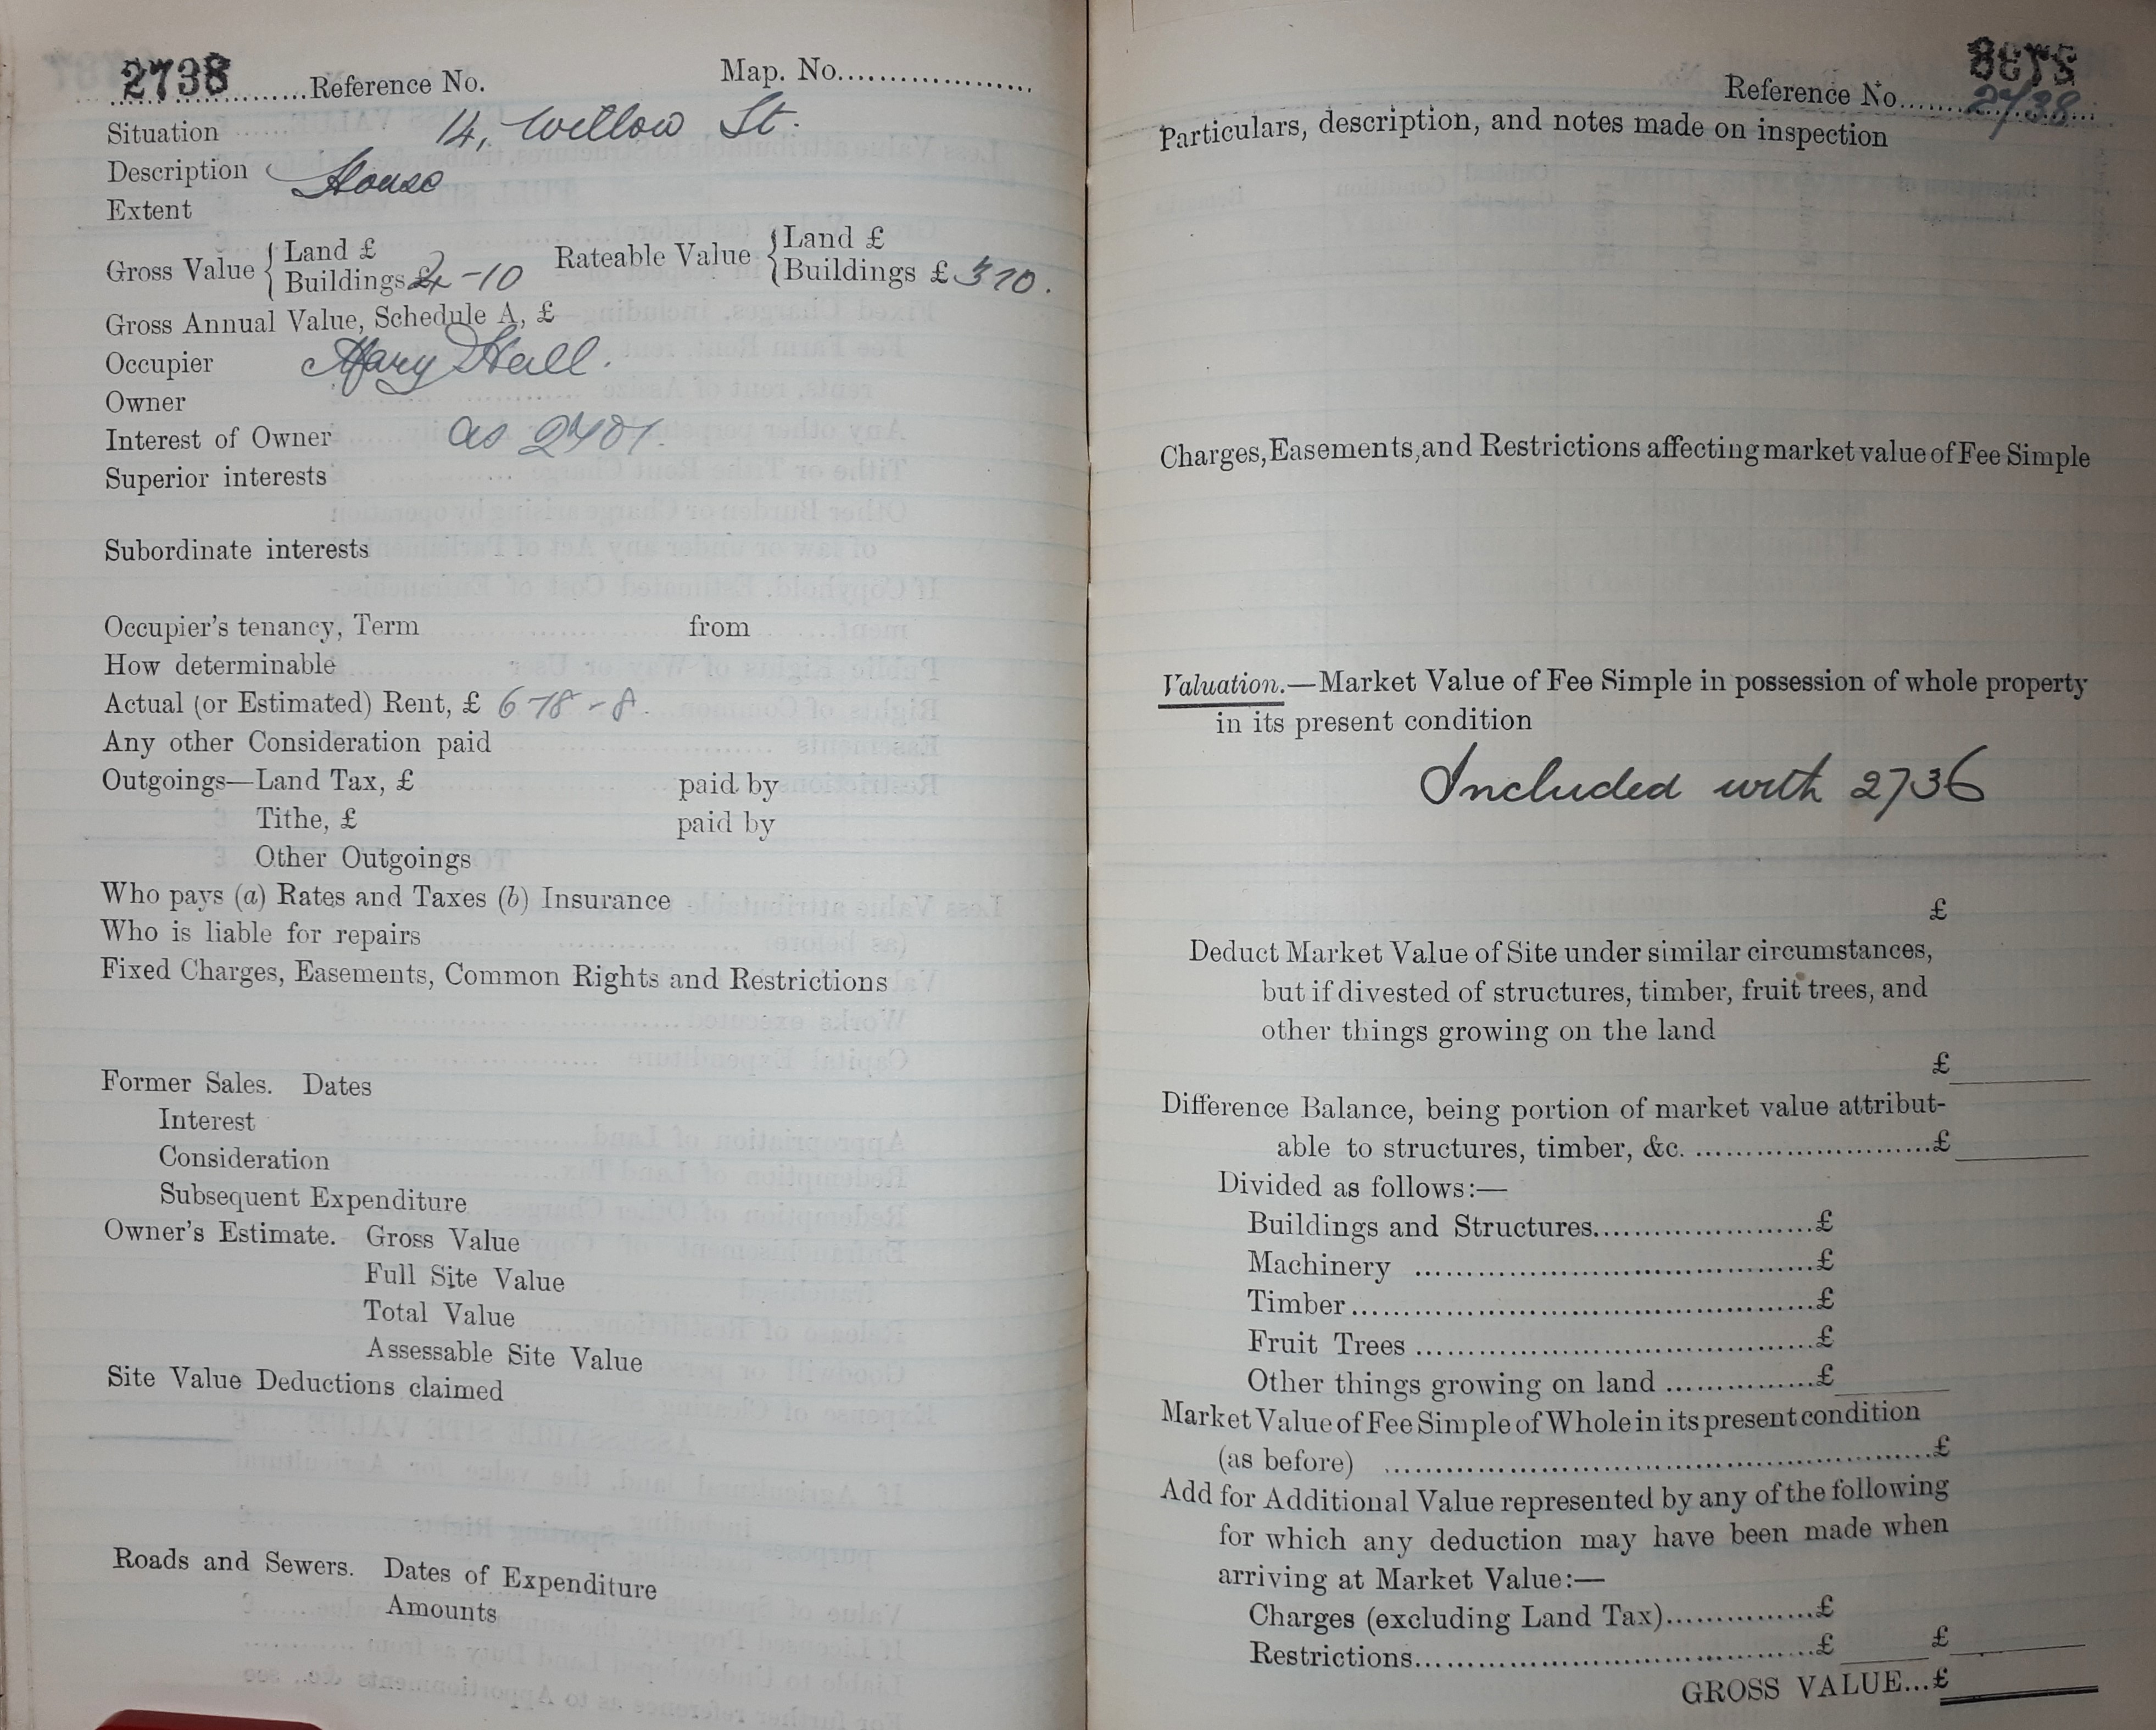 2738 Reference No. Map. No.
Situation 14, Willow St.
Description House
Extent
Gross Value { Land £ Rateable Value { Land £
Buildings £4-10 Buildings £ 310.
Gross Annual Value, Schedule A, £
Occupier Mary Hall.
Owner
Interest of Owner as
Superior interests
Subordinate interests
Occupier's tenancy, Term from
How determinable
Actual (or Estimated) Rent, £ 6-18-8.
Any other Consideration paid
Outgoings—Land Tax, £ paid by
Tithe, £ paid by
Other Outgoings
Who pays (a) Rates and Taxes (b) Insurance
Who is liable for repairs
Fixed Charges, Easements, Common Rights and Restrictions
Former Sales. Dates
Interest
Consideration
Subsequent Expenditure
Owner's Estimate. Gross Value
Full Site Value
Total Value
Assessable Site Value
Site Value Deductions claimed
Roads and Sewers. Dates of Expenditure
Amounts
Reference No. 2738
Particulars, description, and notes made on inspection
Charges, Easements, and Restrictions affecting market value of Fee Simple
Valuation.—Market Value of Fee Simple in possession of whole property
in its present condition
Included with 2736
£
Deduct Market Value of Site under similar circumstances,
but if divested of structures, timber, fruit trees, and
other things growing on the land
£
Difference Balance, being portion of market value attribut-
able to structures, timber, &c. £
Divided as follows:—
Buildings and Structures £
Machinery £
Timber £
Fruit Trees £
Other things growing on land £
Market Value of Fee Simple of Whole in its present condition
(as before) £
Add for Additional Value represented by any of the following
for which any deduction may have been made when
arriving at Market Value:—
Charges (excluding Land Tax) £
Restrictions £ £
GROSS VALUE...£